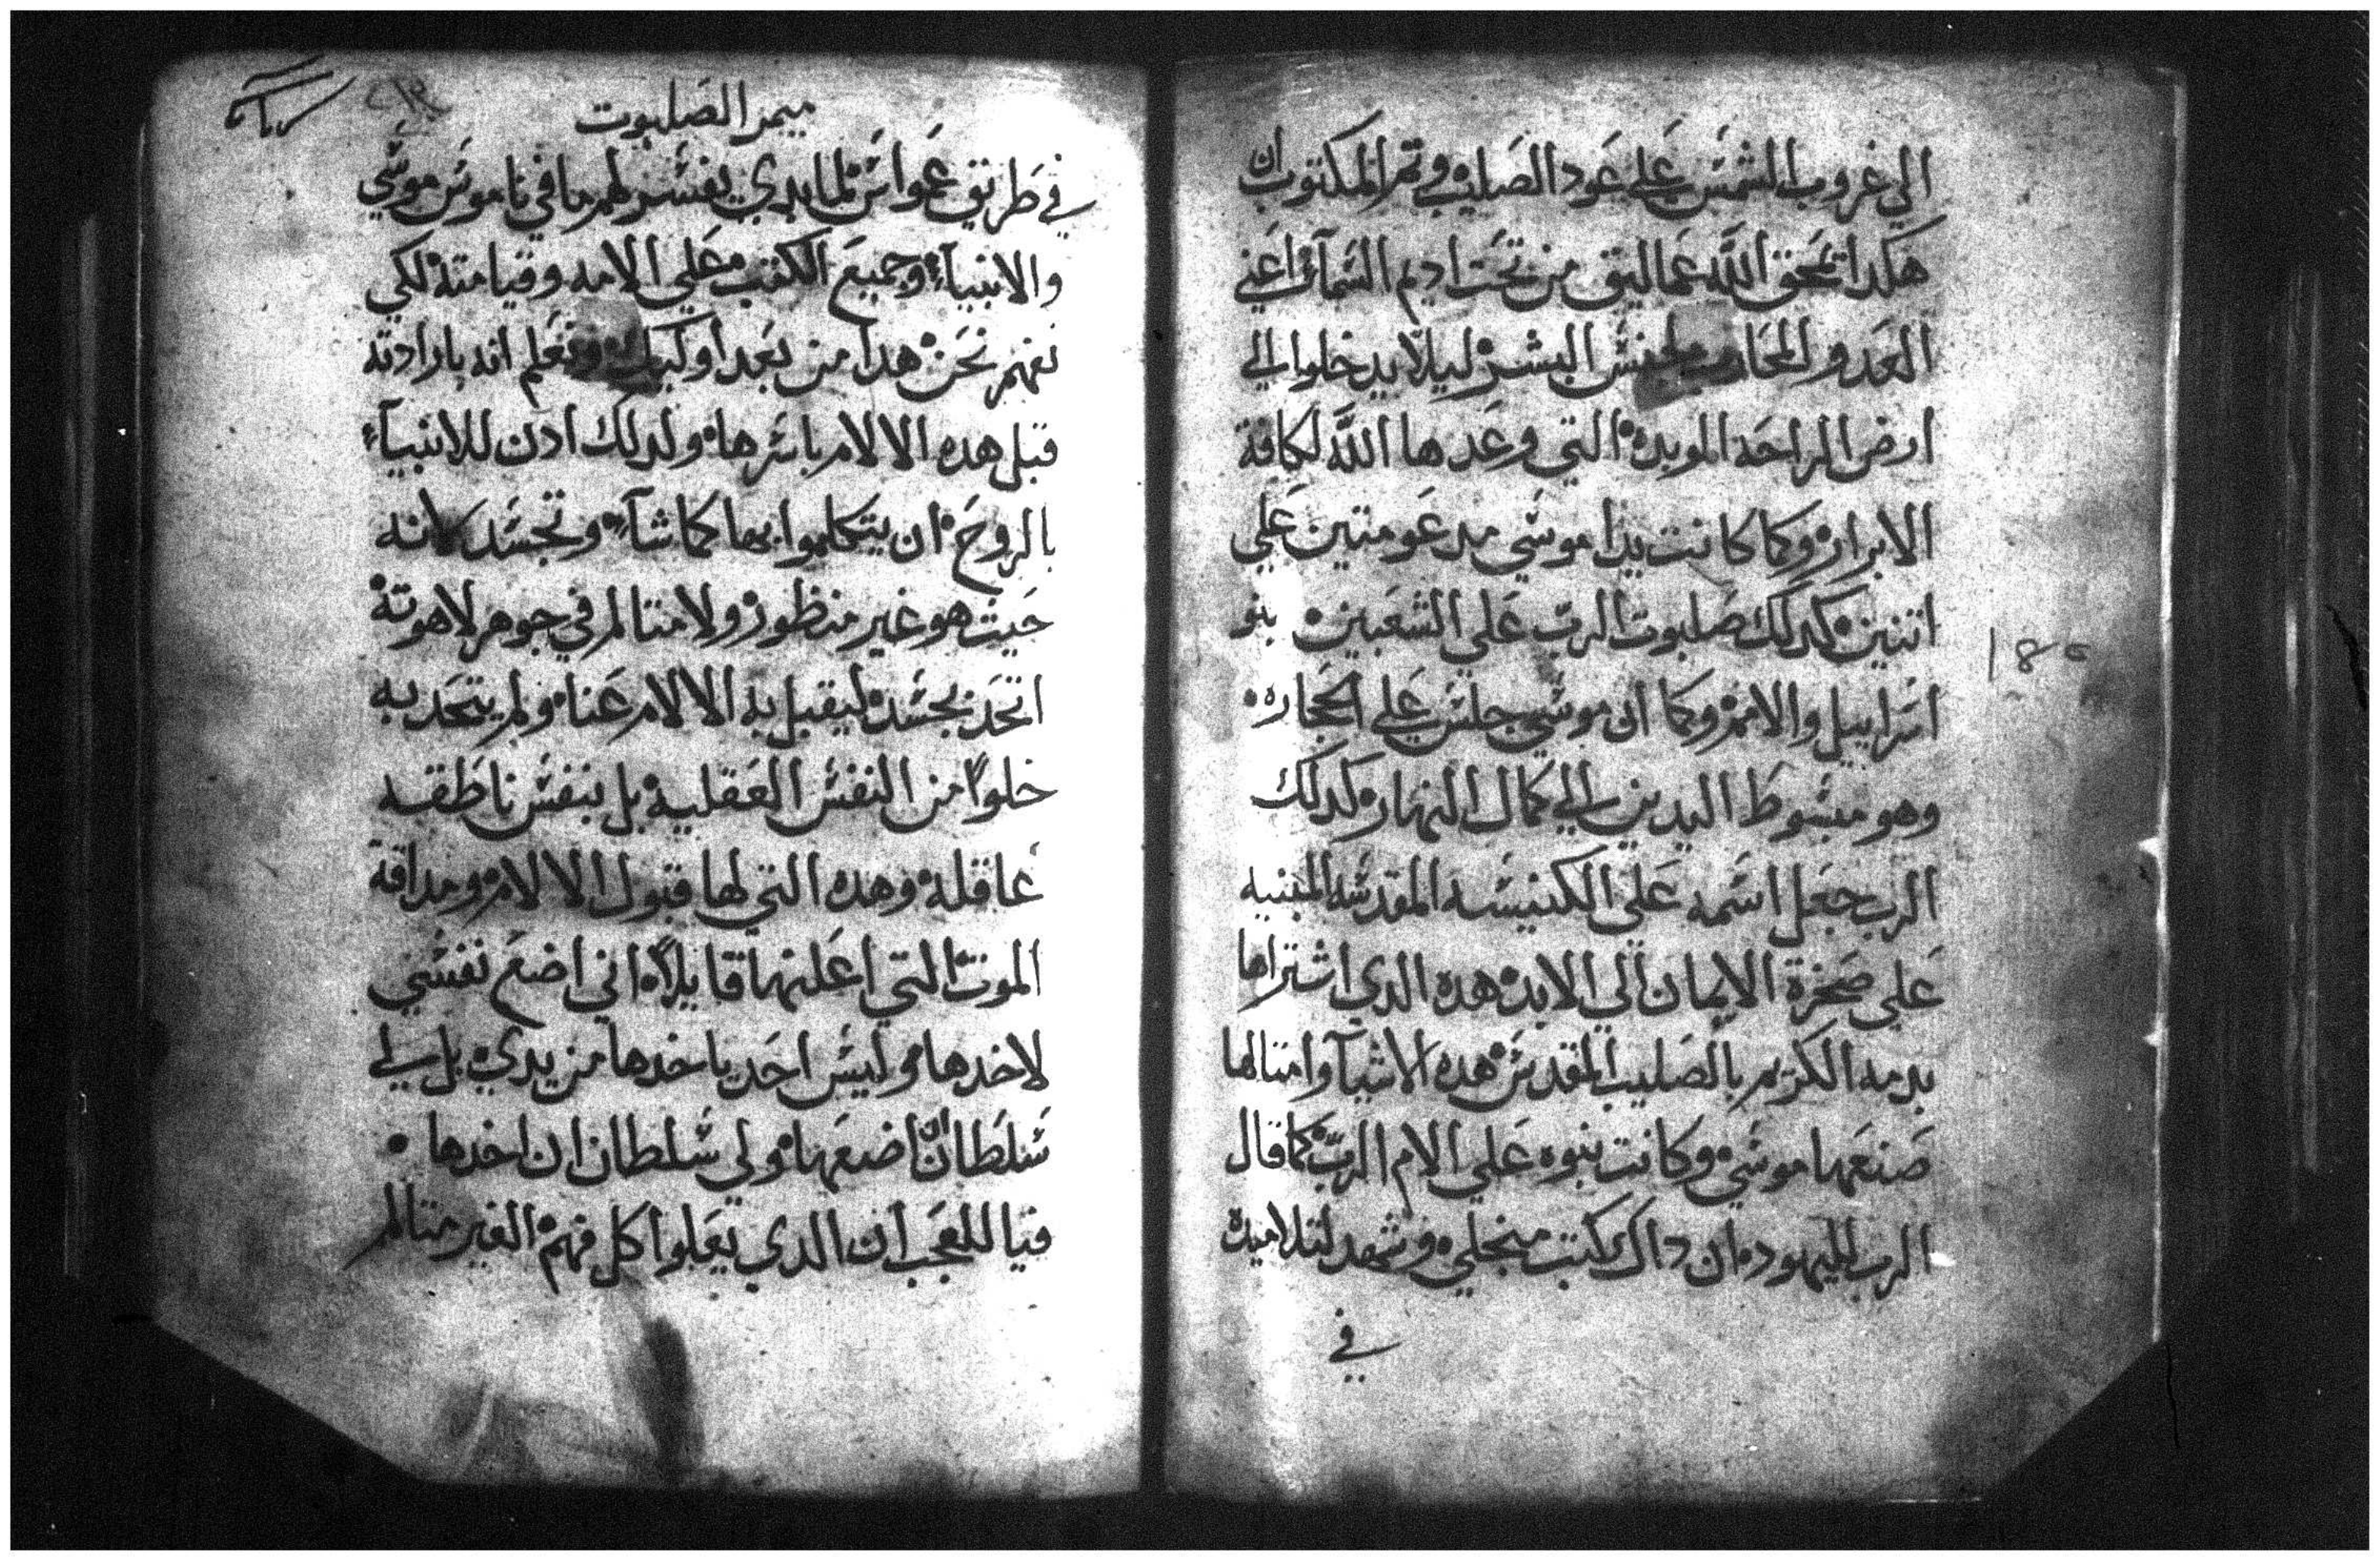 الي غروب الشمس علي عود الصليب وتم المكتوب ان
هكدا تمحق الله عماليق من تحت اديم السمآء اعني
العدو المحارب لجنس البشر ليلا يدخلوا الي
ارض الراحه الموبده التي وعدها الله لكافة
الابرار وكما كانت يدا موسي مدعومتين علي
اتنين كدلك صلبوت الرب علي الشعبين بنو
اسراييل والامم وكما ان موسي جلس علي الحجاره
وهو مبسوط اليدين الي كمال النهار كدلك
الرب جعل اسمه علي الكنيسه المقدسه المبنيه
علي صخرة الايمان الي الابد هده الدي اشتراها
بدمه الكريم بالصليب المقدس هده الاشيآ وامتالها
صنعها موسي وكانت بنوه علي الام الرب كما قال
الرب لليهود ان داك كتب من اجلي وشهد لتلاميده
في
ميمر الصلبوت
في طريق عمواس لما ابدي يفسر لهم ما في ناموس موسي
والانبيآء وجميع الكتب علي الامه وقيامته لكي
نفهم نحن هدا من بعد اوليك ونعلم انه بارادته
قبل هده الالام باسرها ولدلك ادن للانبيآء
بالروح ان يتكلموا بها كما شآء وتجسد لانه
حيت هو غير منظور ولا متالم في جوهر لاهوته
اتحد بجسد ليقبل به الالام عنا ولم يتحد به
خلوا من النفس العقليه بل بنفس ناطقه
عاقله وهده التي لها قبول الالام ومداقة
الموت التي اعلنها قايلا اني اضع نفسي
لاخدها وليس احد ياخدها من يدي بل لي
سلطان ان اضعها ولي سلطان ان اخدها
فيا للعجب ان الدي يعلوا كل فهم الغير متالم